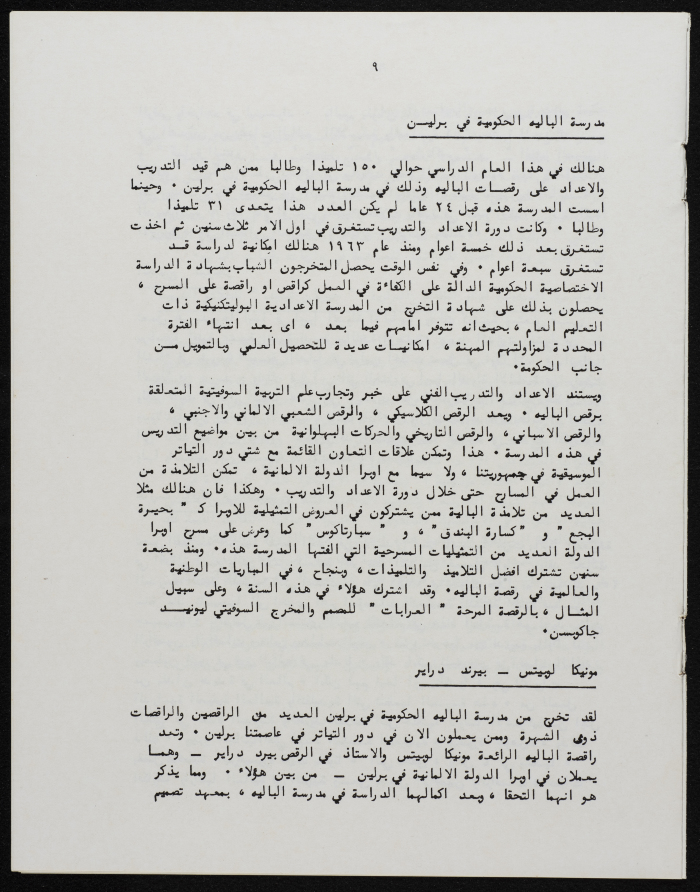 ٩
مدرسة الباليه الحكومية في برليـــن
هنالك في هذا العام الدراسي حوالي ١٥٠ تلميذا وطالبا ممن هم قيد التدريب
والاعداد على رقصات الباليه وذلك في مدرسة الباليه الحكومية في برلين ٠ وحينما
اسست المدرسة هذه قبل ٢٤ عاما لم يكن العدد هذا يتعدى ٣١ تلميذا
وطالبا ٠ وكانت دورة الاعداد والتدريب تستغرق في اول الامر ثلاث سنين ثم اخذت
تستغرق بعد ذلك خمسة اعوام ومنذ عام ١٩٦٣ هنالك امكانية لدراسة قــد
تستغرق سبعة اعوام ٠ وفي نفس الوقت يحصل المتخرجون الشباب بشهادة الدراسة
الاختصاصية الحكومية الدالة على الكفاءة في العمل كراقص او راقصة على المسرح ،
يحصلون بذلك على شهادة التخرج من المدرسة الاعدادية البوليتكنيكية ذات
التعليم العام ، بحيث انه تتوفر امامهم فيما بعد ، اى بعد انتهاء الفترة
المحددة لمزاولتهم المهنة ، امكانيات عديدة للتحصيل العلمي وبالتمويل مــن
جانب الحكومة٠
ويستند الاعداد والتدريب الفني على خبر وتجارب علم التربية السوفيتية المتعلقة
برقص الباليه ٠ ويعد الرقص الكلاسيكي ، والرقص الشعبي الالماني والاجنبي ،
والرقص الاسباني ، والرقص التاريخي والحركات البهلوانية من بين مواضيع التدريس
في هذه المدرسة ٠ هذا وتمكن علاقات التعاون القائمة مع شتي دور التياتر
الموسيقية في جمهوريتنا ، ولا سيما مع اوبرا الدولة الالمانية ، تمكن التلامذة من
العمل في المسارح حتى خلال دورة الاعداد والتدريب ٠ وهكذا فان هنالك مثلا
العديد من تلامذة البالية ممن يشتركون في العروض التمثيلية للاوبرا ك " بحيرة
البجع " و " كسارة البندق " ، و " سبارتاكوس " كما وعرض على مسرح اوبرا
الدولة العديد من التمثيليات المسرحية التي الفتها المدرسة هذه٠ ومنذ بضعة
سنين تشترك افضل التلاميذ والتلميذات ، وبنجاح ، في المباريات الوطنية
والعالمية في رقصة الباليه٠ وقد اشترك هؤلاء في هذه السنة ، وعلى سبيل
المثــال ، بالرقصة المرحة " العرابات " للمصمم والمخرج السوفيتي ليونيــد
جاكوبسن٠
مونيكا لوبيتس ــ بيرند دراير
لقد تخرج من مدرسة الباليه الحكومية في برلين العديد من الراقصين والراقصات
ذوى الشهرة وممن يعملون الان في دور التياتر في عاصمتنا برلين ٠ وتعد
راقصة الباليه الرائعة مونيكا لوبيتس والاستاذ في الرقص بيرد دراير ــ وهمــا
يعملان في اوبرا الدولة الالمانية في برلين ــ من بين هؤلاء ٠ ومما يذكر
هو انهما التحقا ، وبعد اكمالهما الدراسة في مدرسة الباليه ، بمعهد تصميم